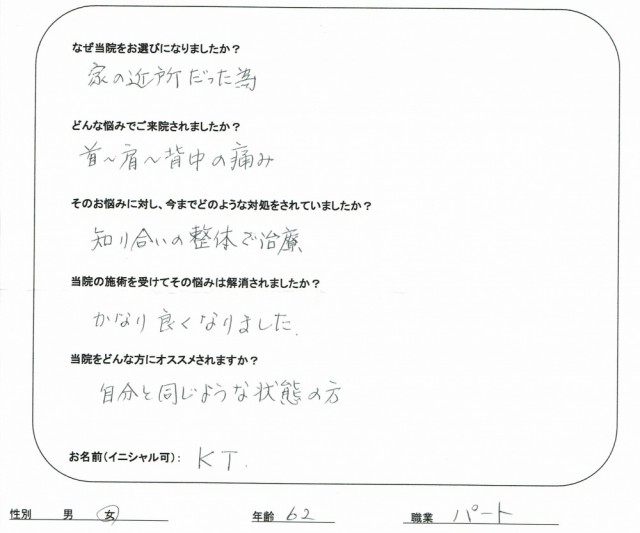 なぜ当院をお選びになりましたか？
家の近所だった為
どんな悩みでご来院されましたか？
首〜肩〜背中の痛み
そのお悩みに対し、今までどのような対処をされていましたか？
知り合いの整体で治療
当院の施術を受けてその悩みは解消されましたか？
かなり良くなりました.
当院をどんな方にオススメされますか？
自分と同じような状態の方
お名前（イニシャル可）： KT.
性別 男 女 年齢 62 職業 パート